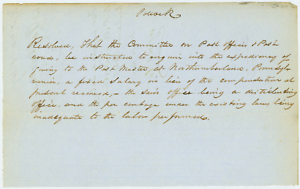 Resolved, That the Committee on Post Offices & Post
roads, be instructed to enquire into the expediency of
giving to the Post Master, at Northumberland, Pennsyl-
vania, a fixed salary in lieu of the compensation at
present received, - the said office being a distributing
office, and the per centage under the existing laws being
inadequate to the labor performed.